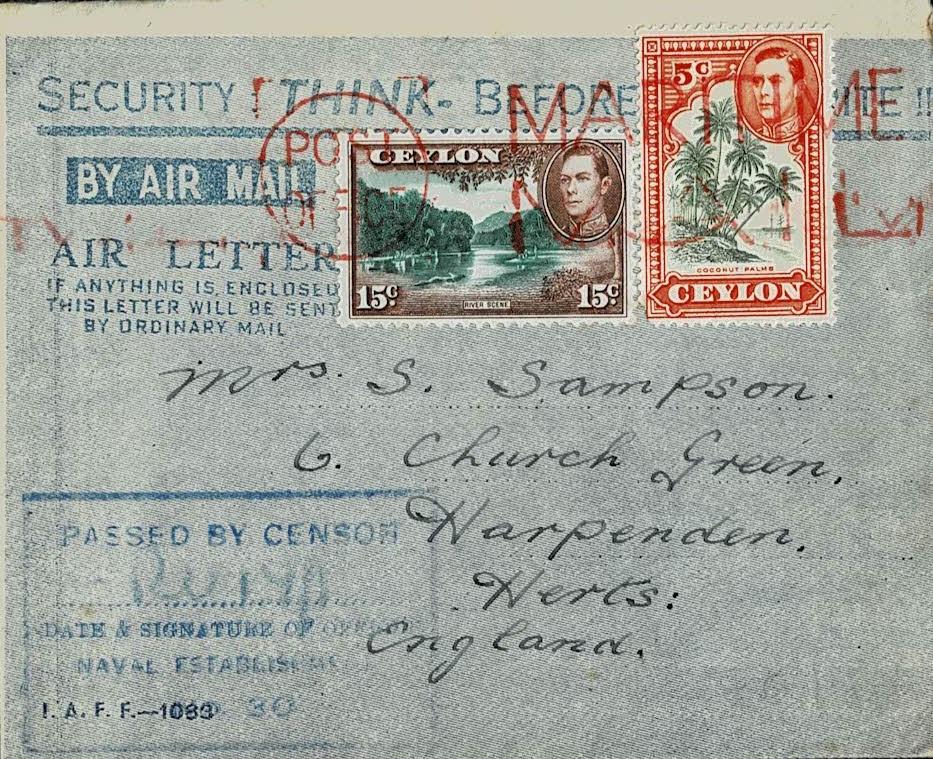 SECURITY! THINK- BEFORE ITE!!
BY AIR MAIL
POST
MA ME
AIR LETTER
IF ANYTHING IS ENCLOSED
THIS LETTER WILL BE SENT
BY ORDINARY MAIL
CEYLON
15c RIVER SCENE 15c
5c
COCONUT PALMS
CEYLON
Mrs. S. Sampson.
6. Church Green,
Harpenden.
Herts:
England.
PASSED BY CENSOR
DATE & SIGNATURE OF
NAVAL
I. A. F. F.—1083
30